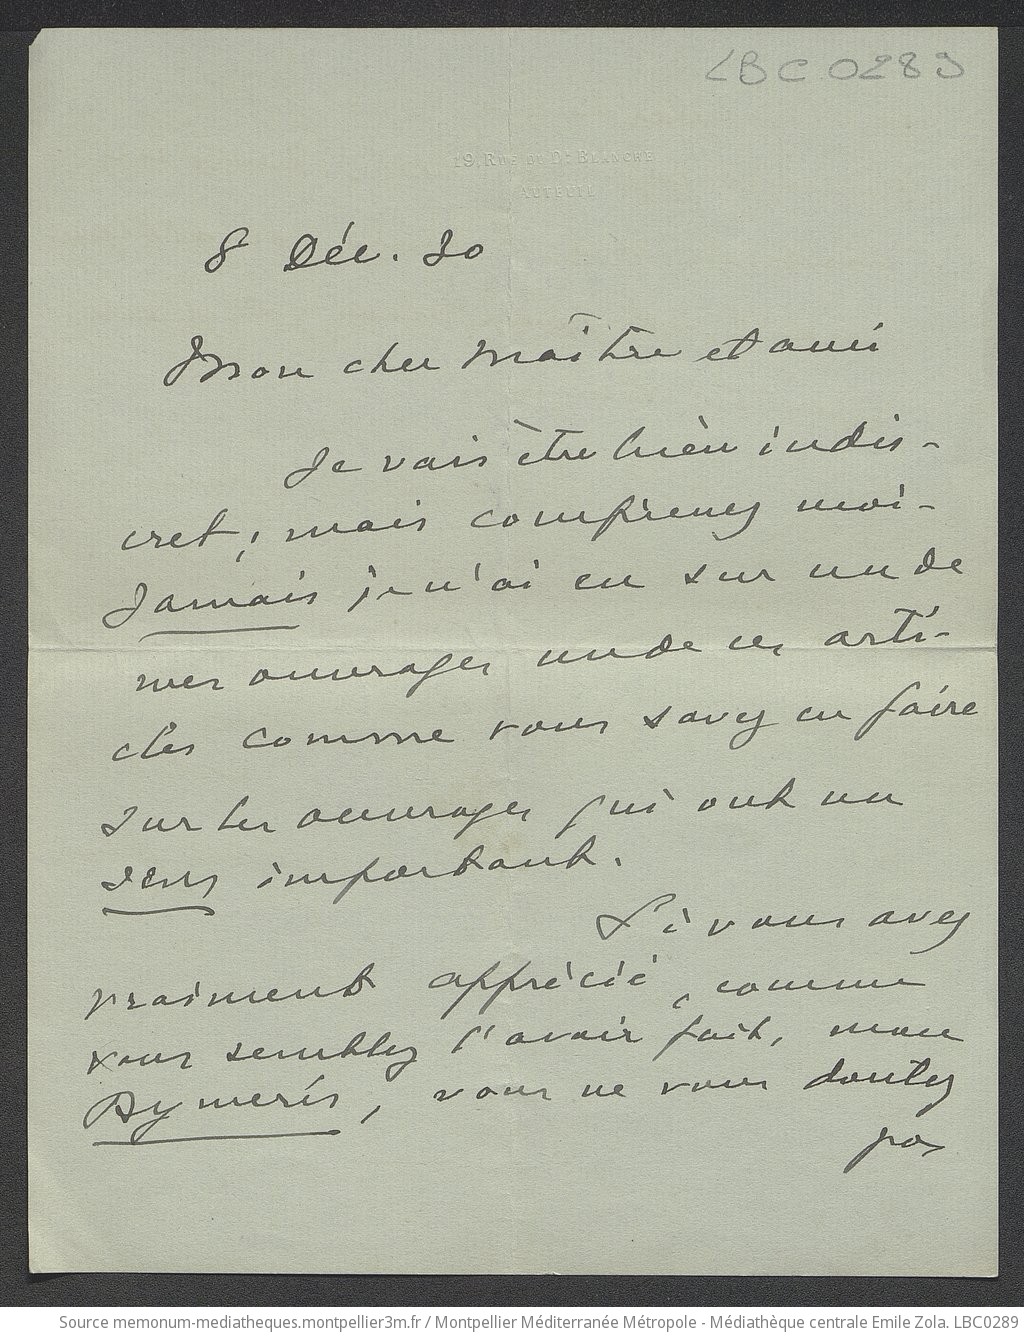 LBC0289
19, RUE DU Dr BLANCHE
AUTEUIL
8 Déc. 20
Mon cher Maître et ami
Je vais être bien indis-
cret ; mais comprenez moi-
Jamais je n'ai eu sur un de
mes ouvrages un de ces arti-
cles comme vous savez en faire
sur les ouvrages qui ont un
sens important.
Si vous avez
vraiment apprécié, comme
vous semblez l'avoir fait, mon
Aymeris, vous ne vous doutez
pas
Source memonum-mediatheques.montpellier3m.fr / Montpellier Méditerranée Métropole - Médiathèque centrale Emile Zola. LBC0289